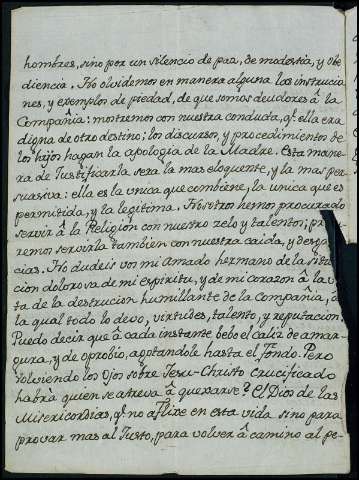 hombres, sino por un silencio de paz, de modestia, y obe
diencia. No olvidemos en manera alguna las instruccio
nes, y exemplos de piedad, de que somos deudores â la
Compañia: mostremos con nuestra conducta, q̃. ella era
digna de otro destino; los discursos, y procedimientos de
los hijos hagan la apologia de la Madre. Esta mane-
ra de Justificarla sera la mas eloquente, y la mas per-
suasiva: ella es la unica que combiene, la unica que es
permitida, y la legitima. Nosotros hemos procurado
servir â la Religion con nuestro zelo y talentos; pro
remos servirla tambien con nuestra caida, y desgra
cias. No dudeis vos mi Amado hermano de la situa
cion dolorosa de mi espiritu, y de mi corazon â la vis
ta de la destrucion humillante de la Compañia, â
la qual todo lo devo, virtudes, talento, y reputacion.
Puedo decir que â cada instante bebo el caliz de amar-
gura, y de oprobio, agotandole hasta el fondo. Pero
volviendo los Ojos sobre Jesu-Christo crucificado
habra quien se atreva â quexarse? El Dios de las
Misericordias, q̃. no aflixe en esta vida sino para
provar mas al Justo, para volver â camino al pe-